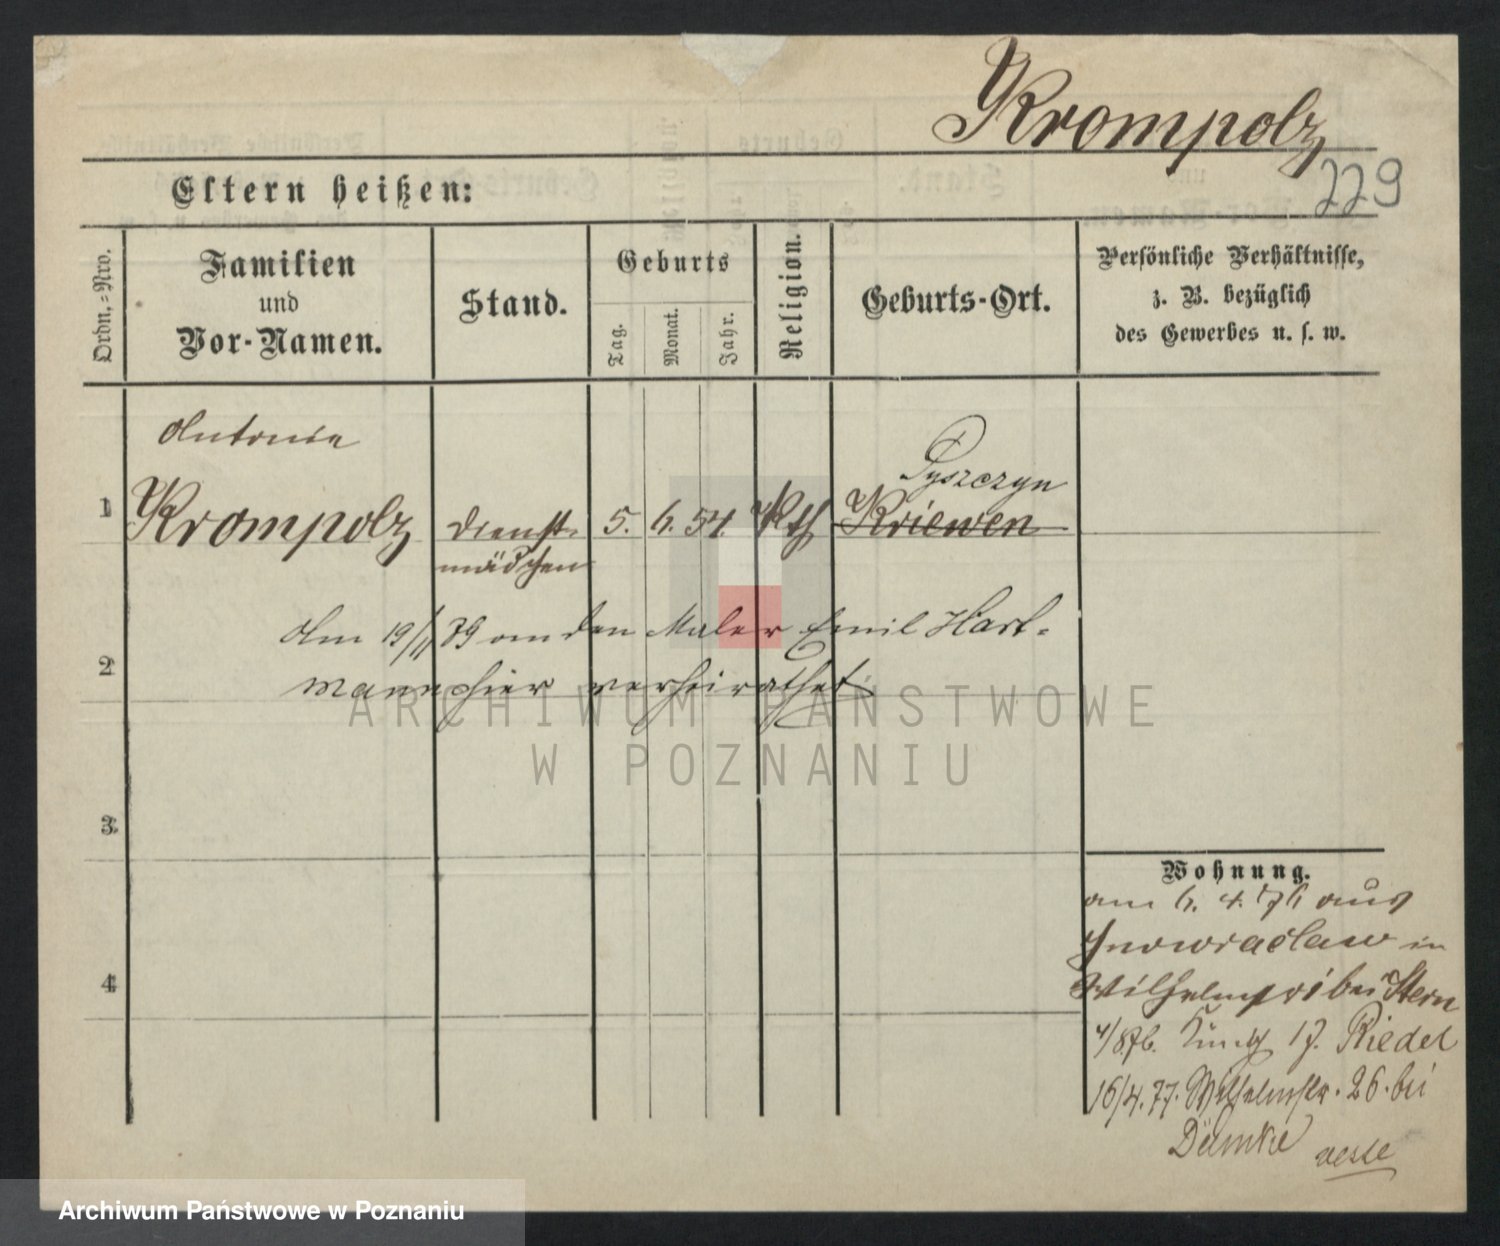 Krompolz
229
Eltern heißen:
Ordn.=Nro.
Familien
und
Vor-Namen.
Stand.
Geburts
Tag.
Monat.
Jahr.
Religion.
Geburts-Ort.
Persönliche Verhältnisse,
z. B. bezüglich
des Gewerbes u. s. w.
Antonie
Pyszczyn
1
Krompolz
Dienst-
mädchen
5.
6.
54.
Kth
Kriewen
Am 19/11 79 an den Maler Emil Hart-
2
mann hier verheirathet
3
4
Wohnung.
am 6. 4. 76 aus
Inowraclaw in
bei Stern
17. Riedel
16/4. 77. Wilhelmstr. 26. bei
Dümke
ARCHIWUM PAŃSTWOWE
W POZNANIU
Archiwum Państwowe w Poznaniu